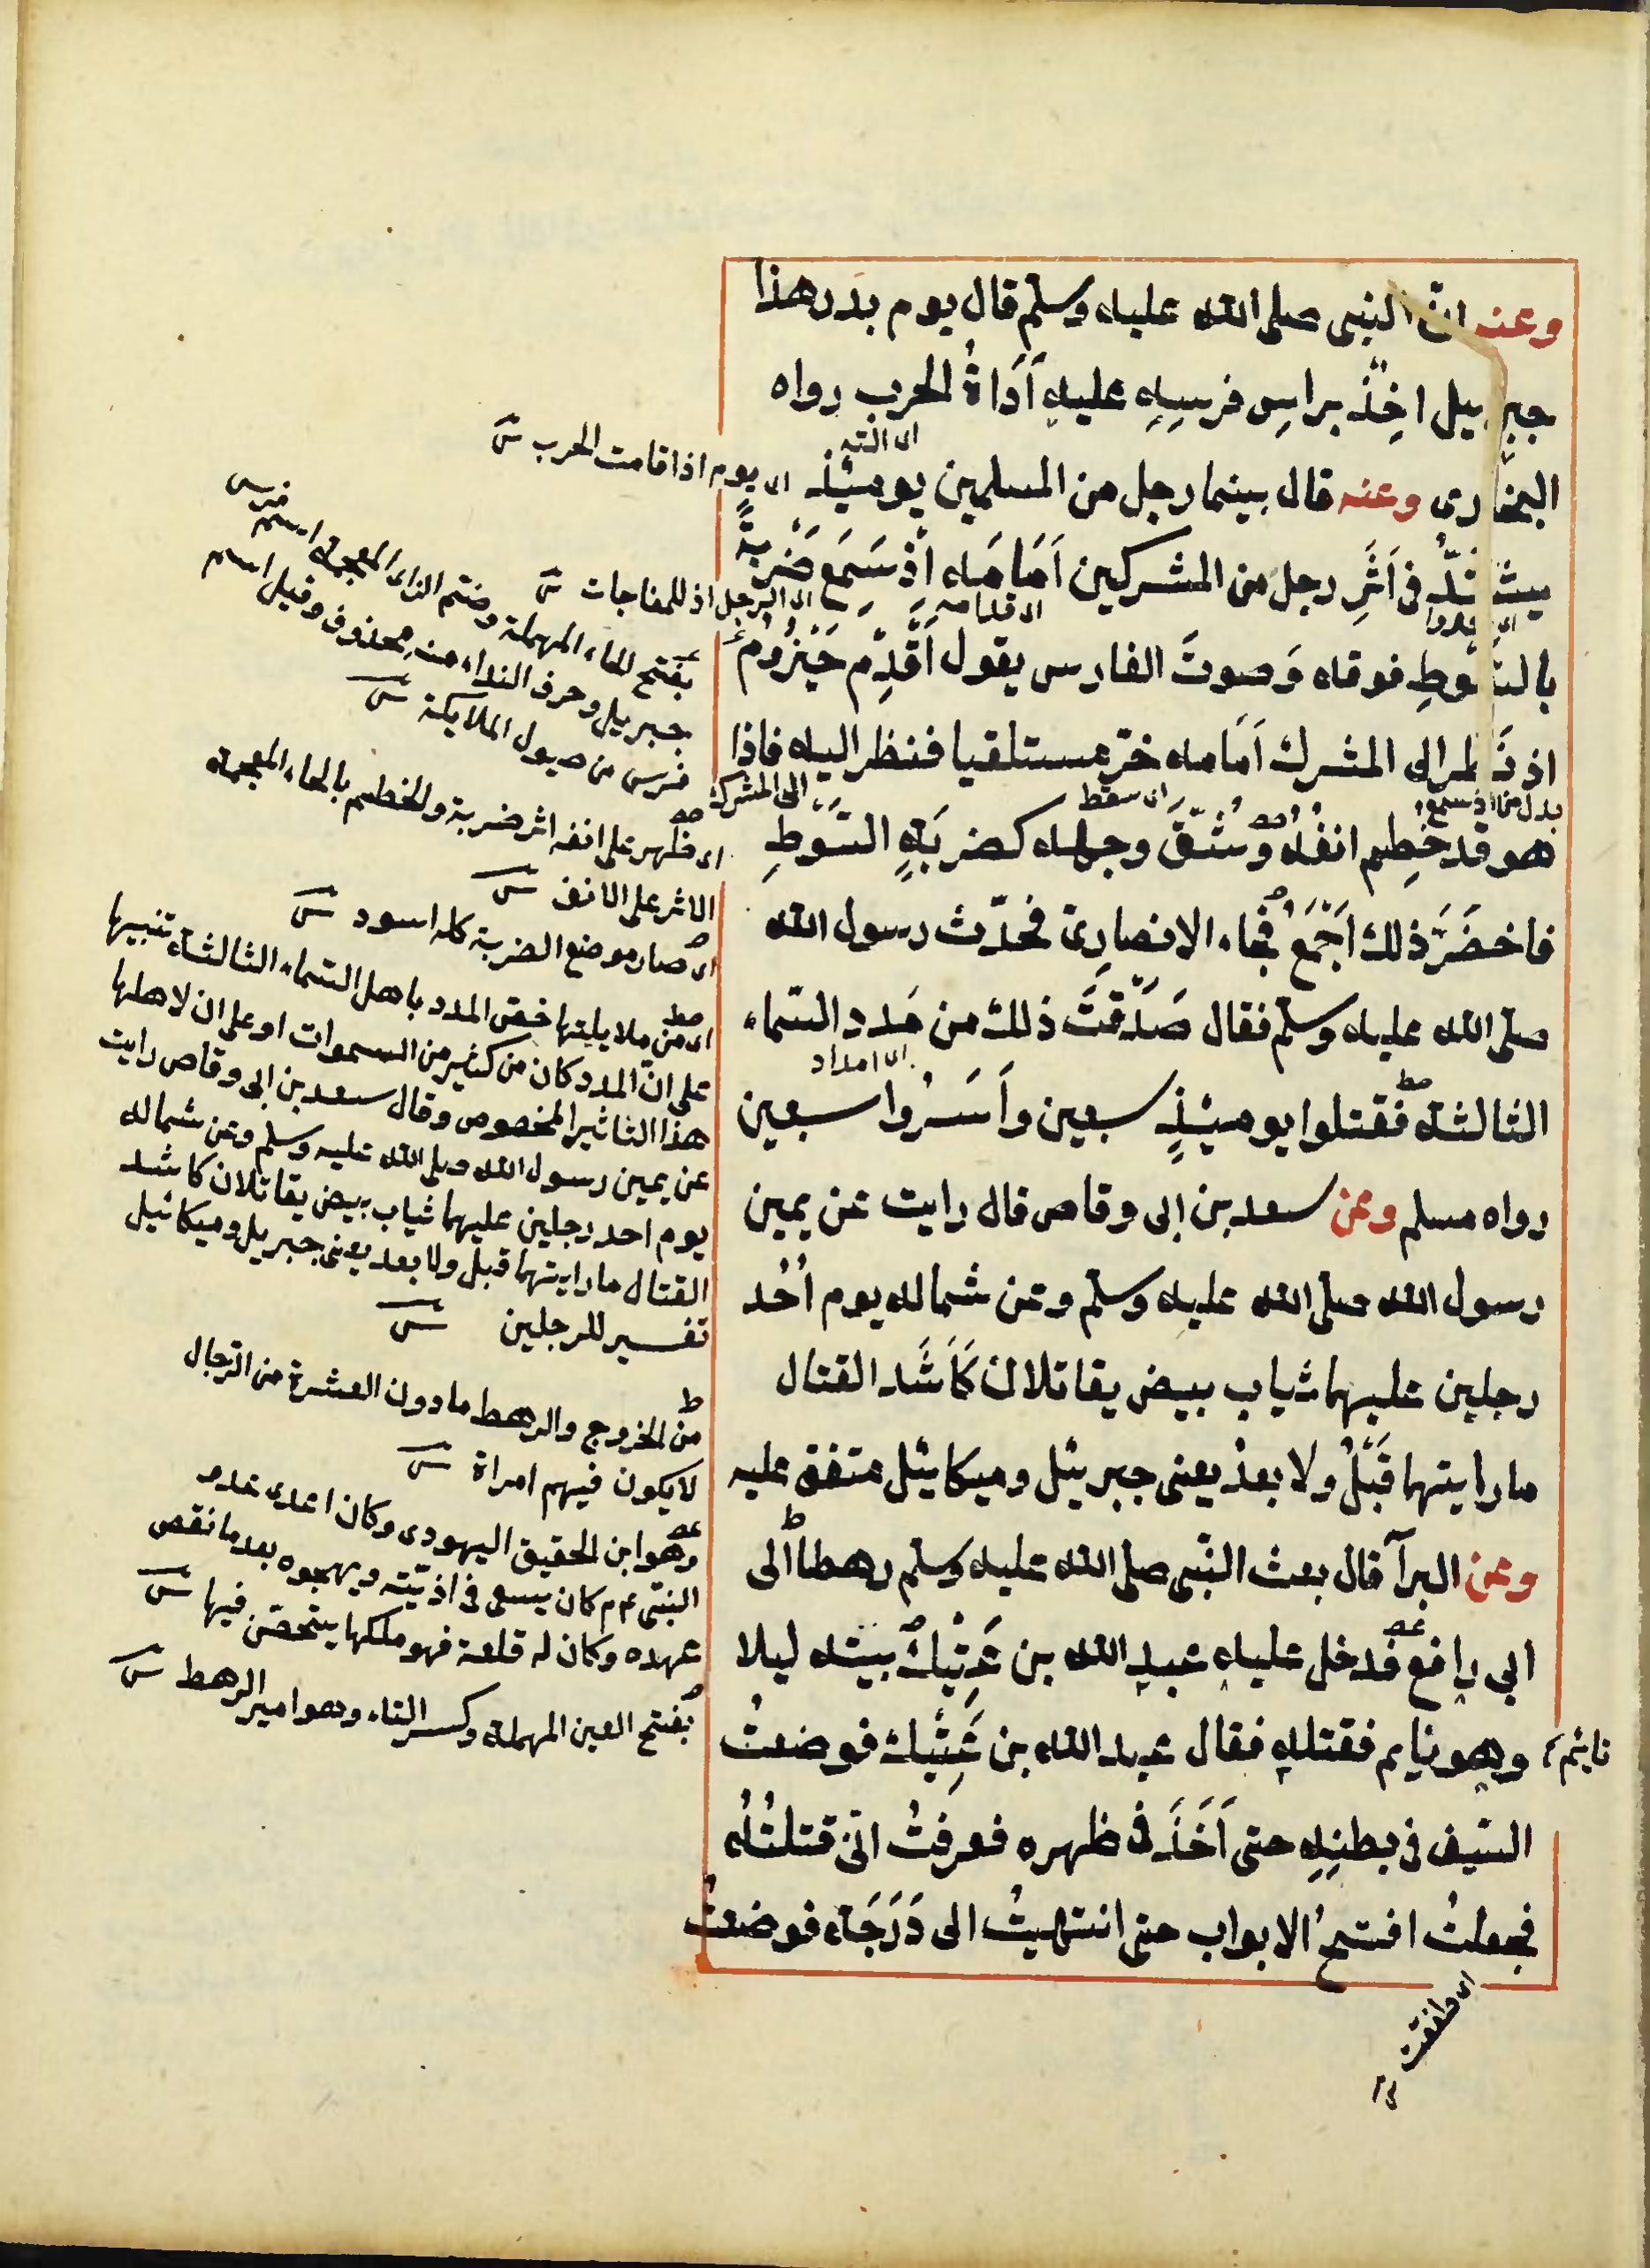 وعنه ان النبى صلى الله عليه وسلم قال يوم بدر هذا
جبرييل اخِذٌ براسِ فرسِهِ عليهِ اَدَاةُ الحرب رواه
البخارى وعنه قال بينما رجل من المسلمين يومئذٍ
يشتدُّ فى اَثَرِ رجل من المشركين اَمَامَه اِذْ سَمِعَ ضَرْبةً
بالسّوطِ فوقه وَصوتَ الفارس يقول اَقْدِمْ حَيْزُومُ
اذ نَظر الى المشرك اَمَامه خرّ مستلقيا فنظر اليه فاذا
هو قد خُطِم انفُه وشُقَّ وجهه كضربَةِ السَّوطِ
فاخضَرَّ ذلك اَجْمَعُ فجاء الانصارىّ فحدّث رسول الله
صلى الله عليه وسلم فقال صَدَقْتَ ذلك من مَدد السّماء
الثالثة فقتلوا يومئذٍ سبعين واَسَرُوا سبعين
رواه مسلم وعن سعد بن ابى وقاص قال رايت عن يمين
رسول الله صلى الله عليه وسلم وعن شماله يوم اُحُد
رجلين عليهما ثياب بيض يقاتلان كَاَشَد القتال
ما رايتهما قَبْلُ ولا بعدُ يعنى جبرئيل وميكائيل متفق عليه
وعن البرآ قال بعث النّبى صلى الله عليه وسلم رهطا الى
ابى رافع فدخل عليه عبد الله بن عَتِيْكٍ بيته ليلا
وهو نايم فقتله فقال عبد الله بن عَتِيْك فوضعتُ
السّيف فى بطنِهِ حتى اَخَذَ فى ظهره فعرفتُ انّى قتلتُه
فجعلتُ افتحُ الابواب حتى انتهيتُ الى دَرَجَة فوضعتُ
اى الته
اى قدامه
اى يعدوا
اى سقط
بدل من اذ سمع
الى المشرك
اى امداد
نايم
اى طفقت
اى يوم اذا قامت الحرب
اى الرجل اذ للمفاجات
بفتح الحاء المهملة وضم الزاى المعجمة اسم فرس
جبريل وحرف النداء منه محذوف وقيل اسم
فرس من خيول الملايكة
اى ظهر على انفه اثر ضربة والخطم بالخاء المعجمة
الاثر على الانف
اى صار موضع الضربة كله اسود
اى من ملايكتها خصّ المدد باهل السّماء الثالثة تنبيها
على انّ المدد كان من كثير من السموات او على ان لاهلها
هذا التاثير المخصوص وقال سعد بن ابى وقاص رايت
عن يمين رسول الله صلى الله عليه وسلم وعن شماله
يوم احد رجلين عليهما ثياب بيض يقاتلان كاشد
القتال ما رايتهما قبل ولا بعد يعنى جبريل وميكائيل
تفسير للرجلين
من الخزرج والرهط ما دون العشرة من الرّجال
لا يكون فيهم امراة
وهو ابن الحقيق اليهودى وكان اعدى عدو
النبىّ ءم كان يسعى فى اذيّته ويهجوه بعد ما نقض
عهده وكان له قلعة فهو ملكها يتحصّن فيها
بفتح العين المهملة وكسر التاء وهو امير الرهط